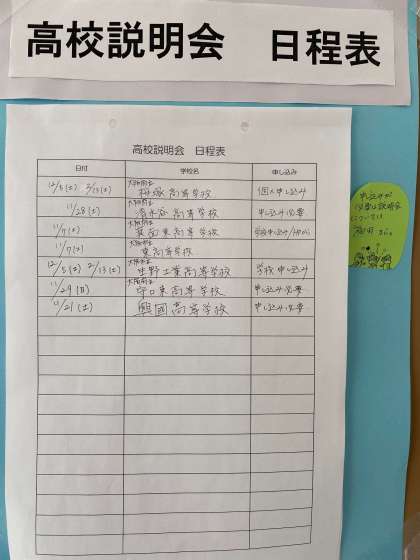 高校説明会　日程表
高校説明会　日程表
日付 学校名 申し込み
12/5(土) 2/13(土) 大阪府立 高等学校 個人申し込み
11/28(土) 大阪府立 清水谷高等学校 申し込み必要
11/7(土) 大阪府立 箕面東高等学校 学校申し込み/HPから
11/7(土) 大阪府立 東高等学校
12/5(土) 2/13(土) 大阪市立 生野工業高等学校 学校申し込み
11/29(日) 大阪府立 守口東高等学校 申し込み必要
11/21(土) 興國高等学校 申し込み必要
申込みが
必要な説明会
については